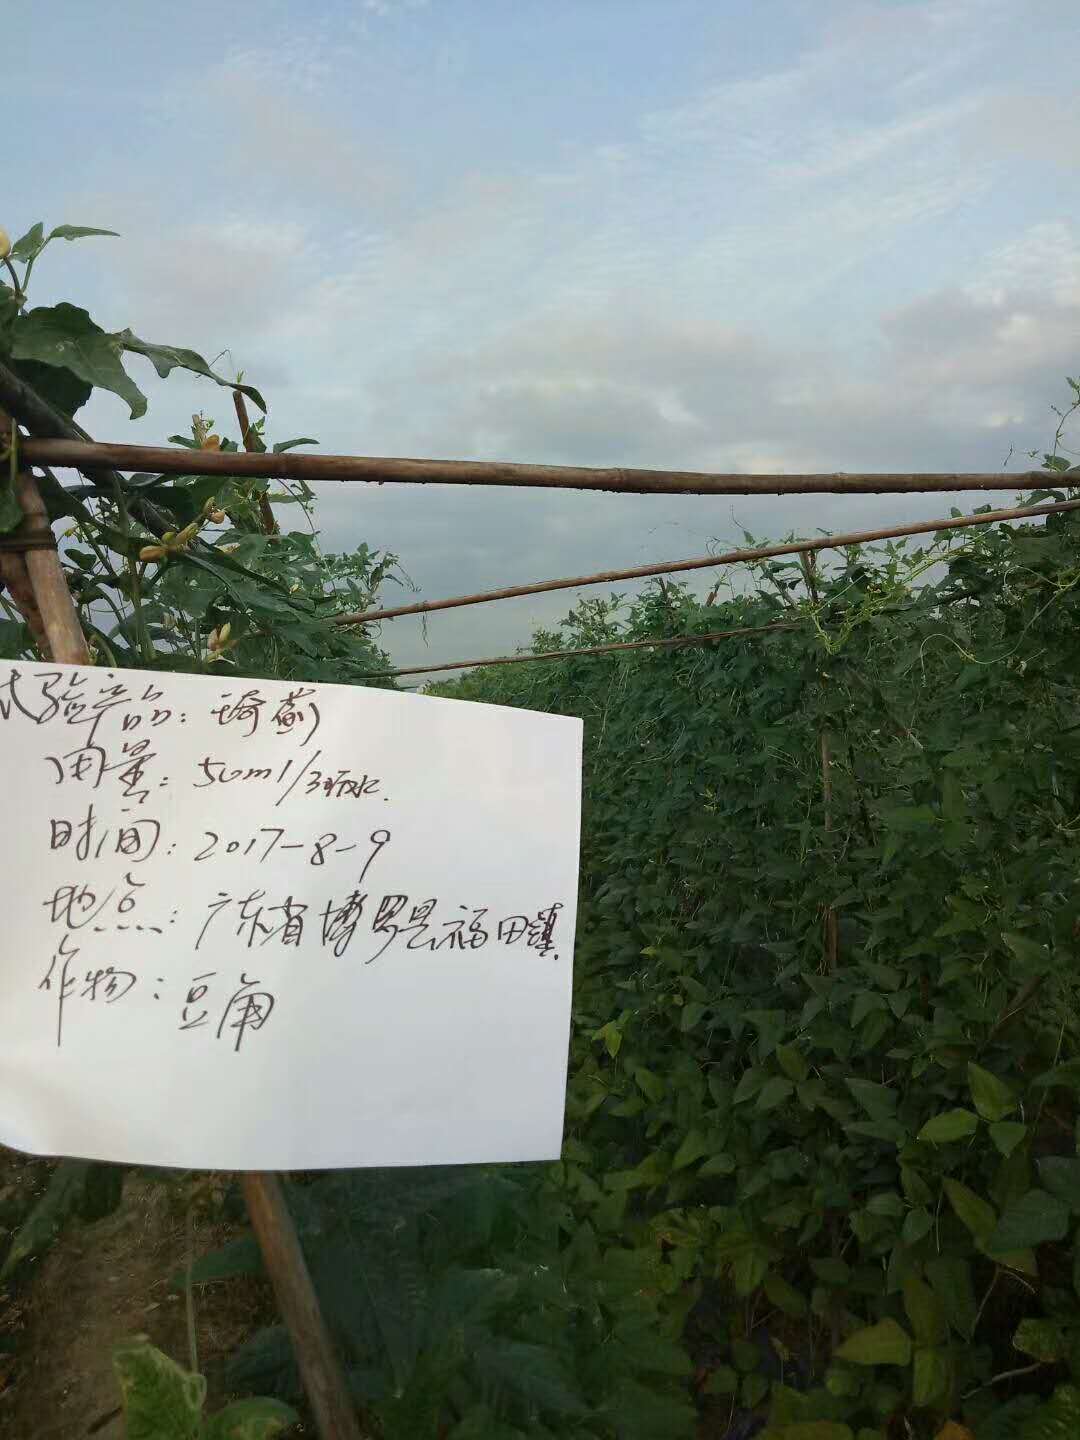 试验产品：琦蓟
用量：50ml/3瓶水.
时间：2017-8-9
地点：广东省博罗县福田镇.
作物：豆角